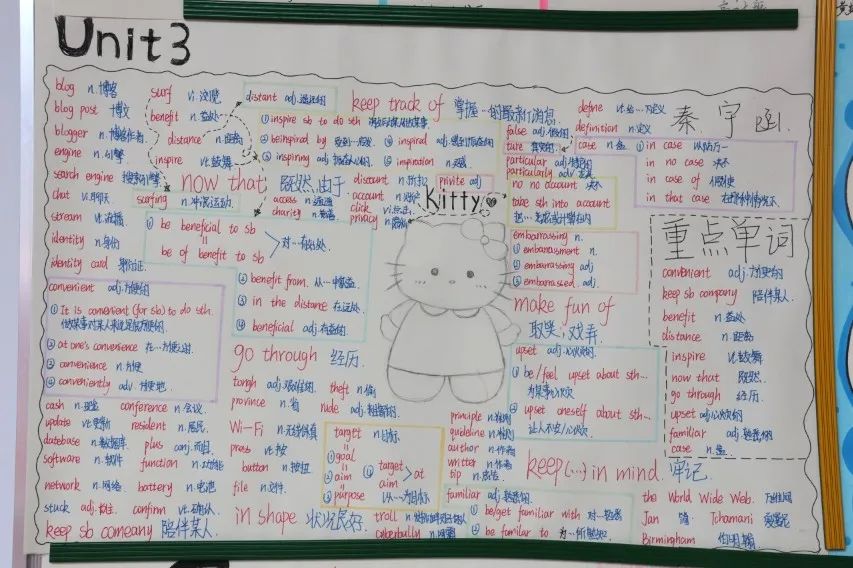 Unit 3
秦宇函.
blog n.博客
blog post 博文
blogger n.博客作者
engine n.引擎
search engine 搜索引擎
chat v.聊天
stream vt.流播
identity n.身份
identity card 身份证.
surf vi.浏览
benefit n.益处
distance n.距离
inspire vt.鼓舞
surfing n.冲浪运动.
distant adj.遥远的
① inspire sb to do sth
② beinspired by
③ inspired adj
③ inspiring adj
④ inspiration n.灵感
keep track of 掌握…的最新消息
now that 既然,由于
discount n.折扣
account n.账户
access n.通道
click
charity n.慈善
privacy n.
private adj
Kitty
define vt.给…下定义
definition n.定义
false adj.假的
case n.盒
particular adj
particularly adv
no no account 决不
take sth into account
① in case 以防万一
in no case 决不
in case of 假使
in that case
① be beneficial to sb
=
be of benefit to sb
对…有益处
② benefit from. 从…中受益
③ in the distance 在远处
④ beneficial adj.有益的
embarrassing n.
① embarrassment n.
② embarrassing adj
③ embarrassed adj.
convenient adj.方便的
① It is convenient (for sb) to do sth.
② at one's convenience 在…方便时
③ convenience n.方便
④ conveniently adv.方便地
go through 经历.
make fun of
取笑,戏弄
upset adj.心烦的
① be/feel upset about sth…
为某事心烦
② upset oneself about sth…
让人不安/心烦
重点单词
convenient adj.方便的
keep sb company 陪伴某人.
benefit n.益处
distance n.距离
inspire vt.鼓舞
now that 既然.
go through 经历.
upset adj.心烦的
familiar adj.熟悉的
case n.盒
tough adj.艰难的
theft n.偷
province n.省
rude adj.粗鲁的.
cash n.现金
conference n.会议.
update vt.更新
resident n.居民
datebase n.数据库
plus conj.而且
software n.软件
function n.功能
network n.网络.
battery n.电池
stuck adj.卡住
confirm vt.确认.
keep sb comeany 陪伴某人.
Wi-Fi n.无线保真
press vt.按
button n.按钮
file n.文件.
in shape 状况良好.
target n.目标
① goal
② aim
③ purpose
④ target
aim
at
以…为目标
troll n.
cyberbully n.网霸
principle n.原则
guideline n.准则
author n.作者
writter n.作者
tip n.
keep (…) in mind. 牢记.
familiar adj.熟悉的
① be/get familiar with 对…熟悉
② be familar to 为…所熟知.
the World Wide Web. 万维网
Jan 简
Tchamani 夏曼尼
Birmingham 伯明翰